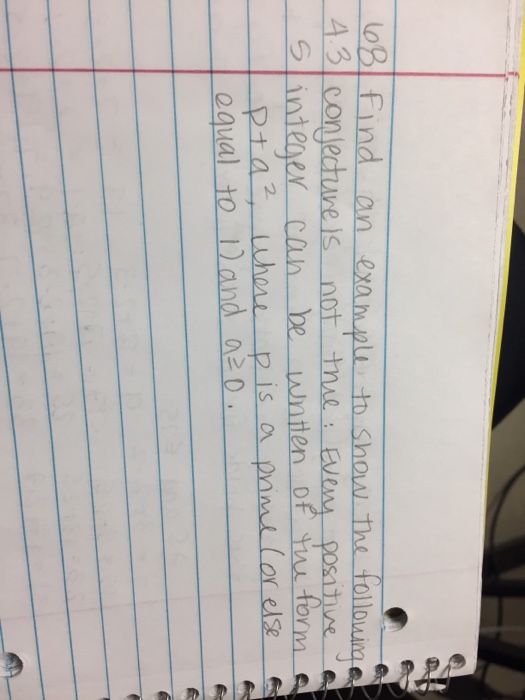 68 Find an example to show the following
4.3 conjecture is not true: Every positive
5 integer can be written of the form
p+a², where p is a prime (or else
equal to 1) and a≥0.